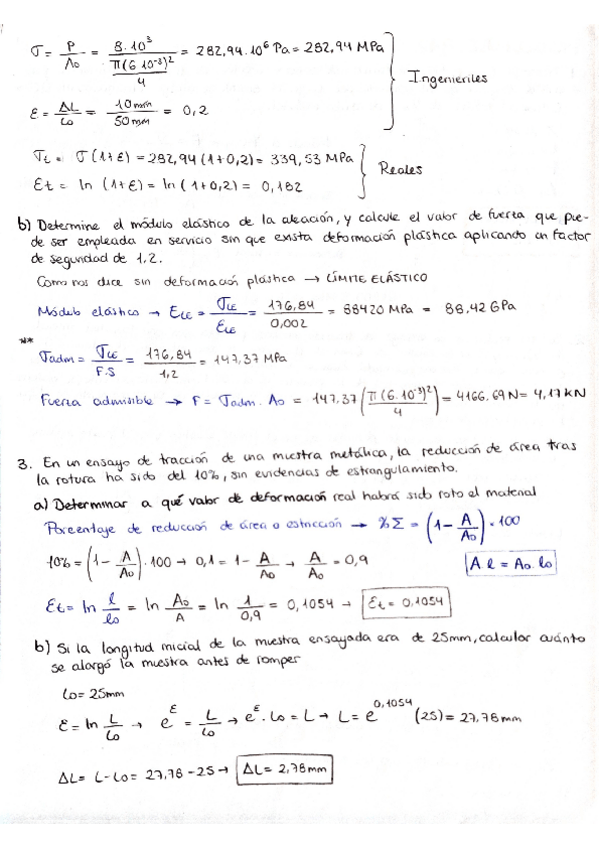 σ = P/A₀ = 8·10³ / (π(6·10⁻³)²/4) = 282,94·10⁶ Pa = 282,94 MPa
Ingenieriles
ε = ΔL/L₀ = 10mm/50mm = 0,2
σt = σ(1+ε) = 282,94(1+0,2) = 339,53 MPa
Reales
εt = ln(1+ε) = ln(1+0,2) = 0,182
b) Determine el módulo elástico de la aleación, y calcule el valor de fuerza que pue-
de ser empleada en servicio sin que exista deformación plástica aplicando un factor
de seguridad de 1,2.
Como nos dice sin deformación plástica → LÍMITE ELÁSTICO
Módulo elástico → E_LE = σ_LE/ε_LE = 176,84/0,002 = 88420 MPa = 88,42 GPa
σadm = σ_LE/F.S = 176,84/1,2 = 147,37 MPa
Fuerza admisible → F = σadm · A₀ = 147,37 (π(6·10⁻³)²/4) = 4166,69N = 4,17KN
3. En un ensayo de tracción de una muestra metálica, la reducción de área tras
la rotura ha sido del 10%, sin evidencias de estrangulamiento.
a) Determinar a qué valor de deformación real habrá sido roto el material
Porcentaje de reducción de área o estricción → %Σ = (1 - A/A₀)·100
10% = (1 - A/A₀)·100 → 0,1 = 1 - A/A₀ → A/A₀ = 0,9
A·l = A₀·l₀
εt = ln l/l₀ = ln A₀/A = ln 1/0,9 = 0,1054 → εt = 0,1054
b) Si la longitud inicial de la muestra ensayada era de 25mm, calcular cuánto
se alargó la muestra antes de romper
l₀ = 25mm
ε = ln L/L₀ → e^ε = L/L₀ → e^ε · L₀ = L → L = e^0,1054 (25) = 27,78 mm
ΔL = L - L₀ = 27,78 - 25 → ΔL = 2,78mm